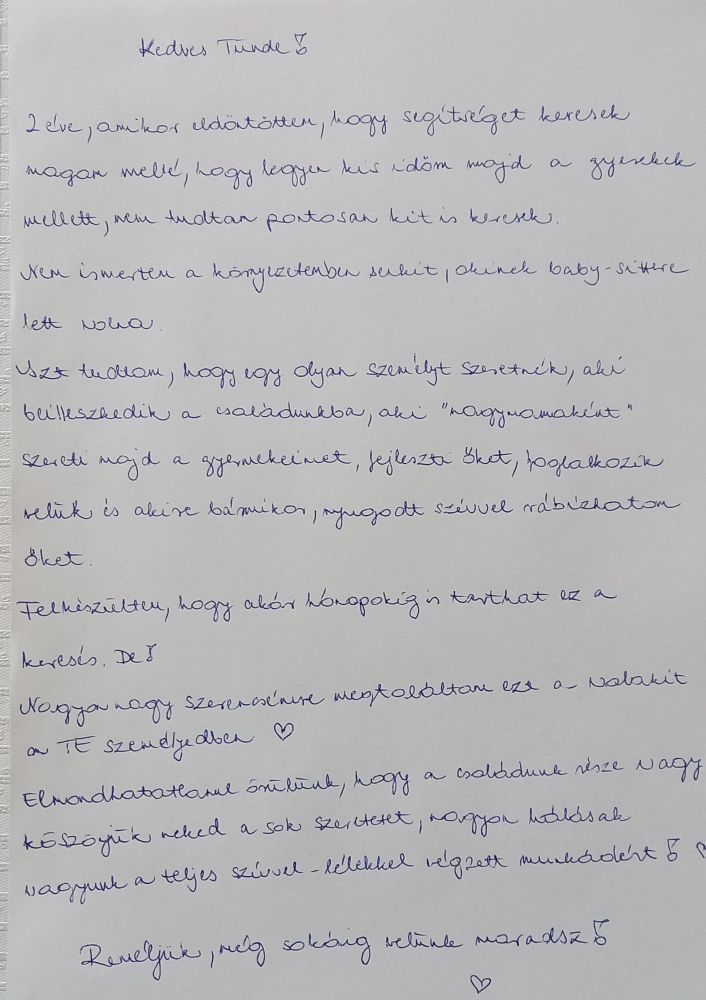 Kedves Tünde!
2 éve, amikor eldöntöttem, hogy segítséget keresek
magam mellé, hogy legyen kis időm majd a gyerekek
mellett, nem tudtam pontosan kit is keresek.
Nem ismertem a környezetemben senkit, akinek baby-sittere
lett volna.
Azt tudtam, hogy egy olyan személyt szeretnék, aki
beilleszkedik a családunkba, aki "nagymamaként"
szereti majd a gyermekeimet, fejleszti őket, foglalkozik
velük és akire bármikor, nyugodt szívvel rábízhatom
őket.
Felkészültem, hogy akár hónapokig is tarthat ez a
keresés. De!
Nagyon nagy szerencsémre megtaláltam ezt a valakit
a TE személyedben ♡
Elmondhatatlanul örülünk, hogy a családunk része vagy
köszönjük neked a sok szeretetet, nagyon hálásak
vagyunk a teljes szívvel-lélekkel végzett munkádért! ♡
Reméljük, még sokáig velünk maradsz!
♡